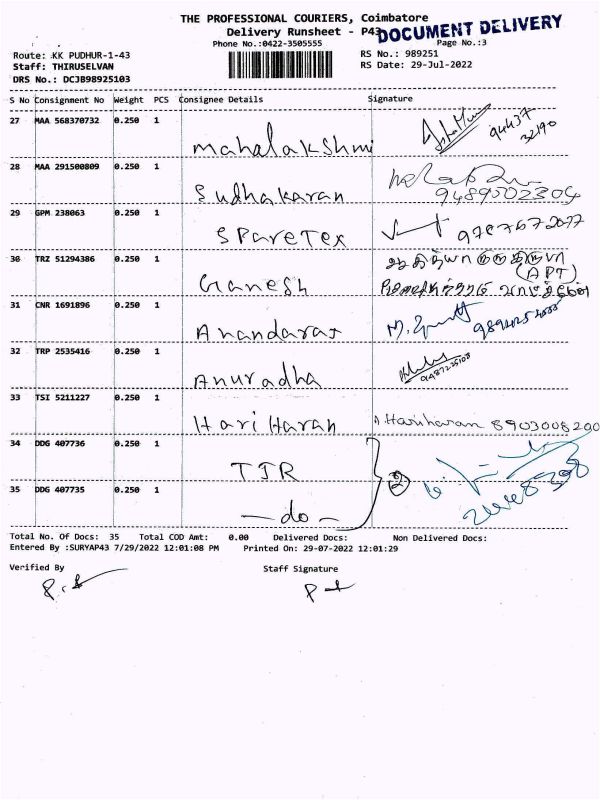 THE PROFESSIONAL COURIERS, Coimbatore
Delivery Runsheet - P43
DOCUMENT DELIVERY
Phone No.:0422-3505555
Page No.:3
Route: KK PUDHUR-1-43
RS No.: 989251
Staff: THIRUSELVAN
RS Date: 29-Jul-2022
DRS No.: DCJB98925103
S No Consignment No Weight PCS Consignee Details Signature
27 MAA 568370732 0.250 1 Mahalakshmi 94437 32190
28 MAA 291500809 0.250 1 Sudhakaran 9489502304
29 GPM 238063 0.250 1 SPareTex 9787672077
30 TRZ 51294386 0.250 1 Ganesh (APT)
31 CNR 1691896 0.250 1 Anandaraj
32 TRP 2535416 0.250 1 Anuradha 9487235108
33 TSI 5211227 0.250 1 Hari Haran Hariharan 8903008200
34 DDG 407736 0.250 1 TJR 2
35 DDG 407735 0.250 1 -do-
Total No. Of Docs: 35 Total COD Amt: 0.00 Delivered Docs: Non Delivered Docs:
Entered By :SURYAP43 7/29/2022 12:01:08 PM Printed On: 29-07-2022 12:01:29
Verified By Staff Signature